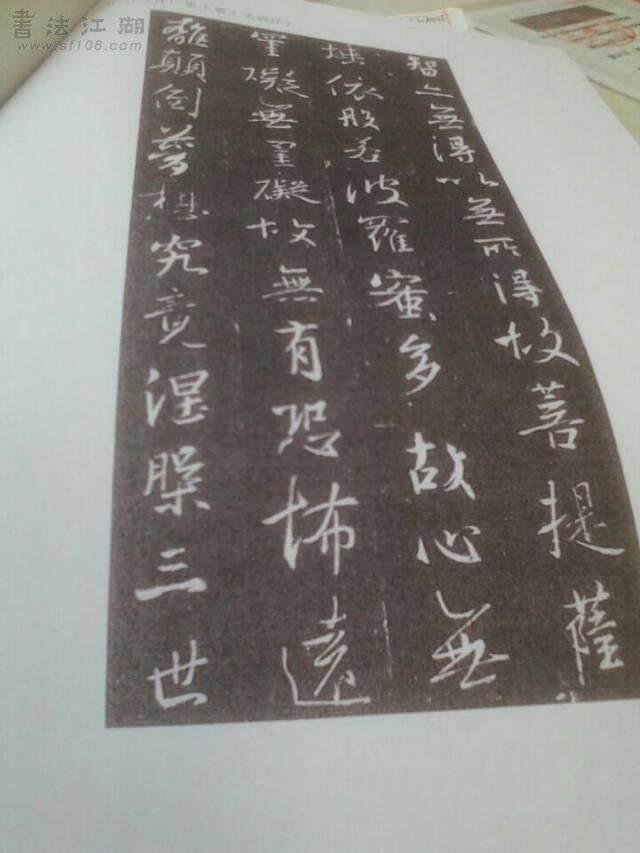 書法江湖
www.sf108.com
智亦無得以無所得故菩提薩
埵依般若波羅蜜多故心無
罣礙無罣礙故無有恐怖遠
離顛倒夢想究竟涅槃三世